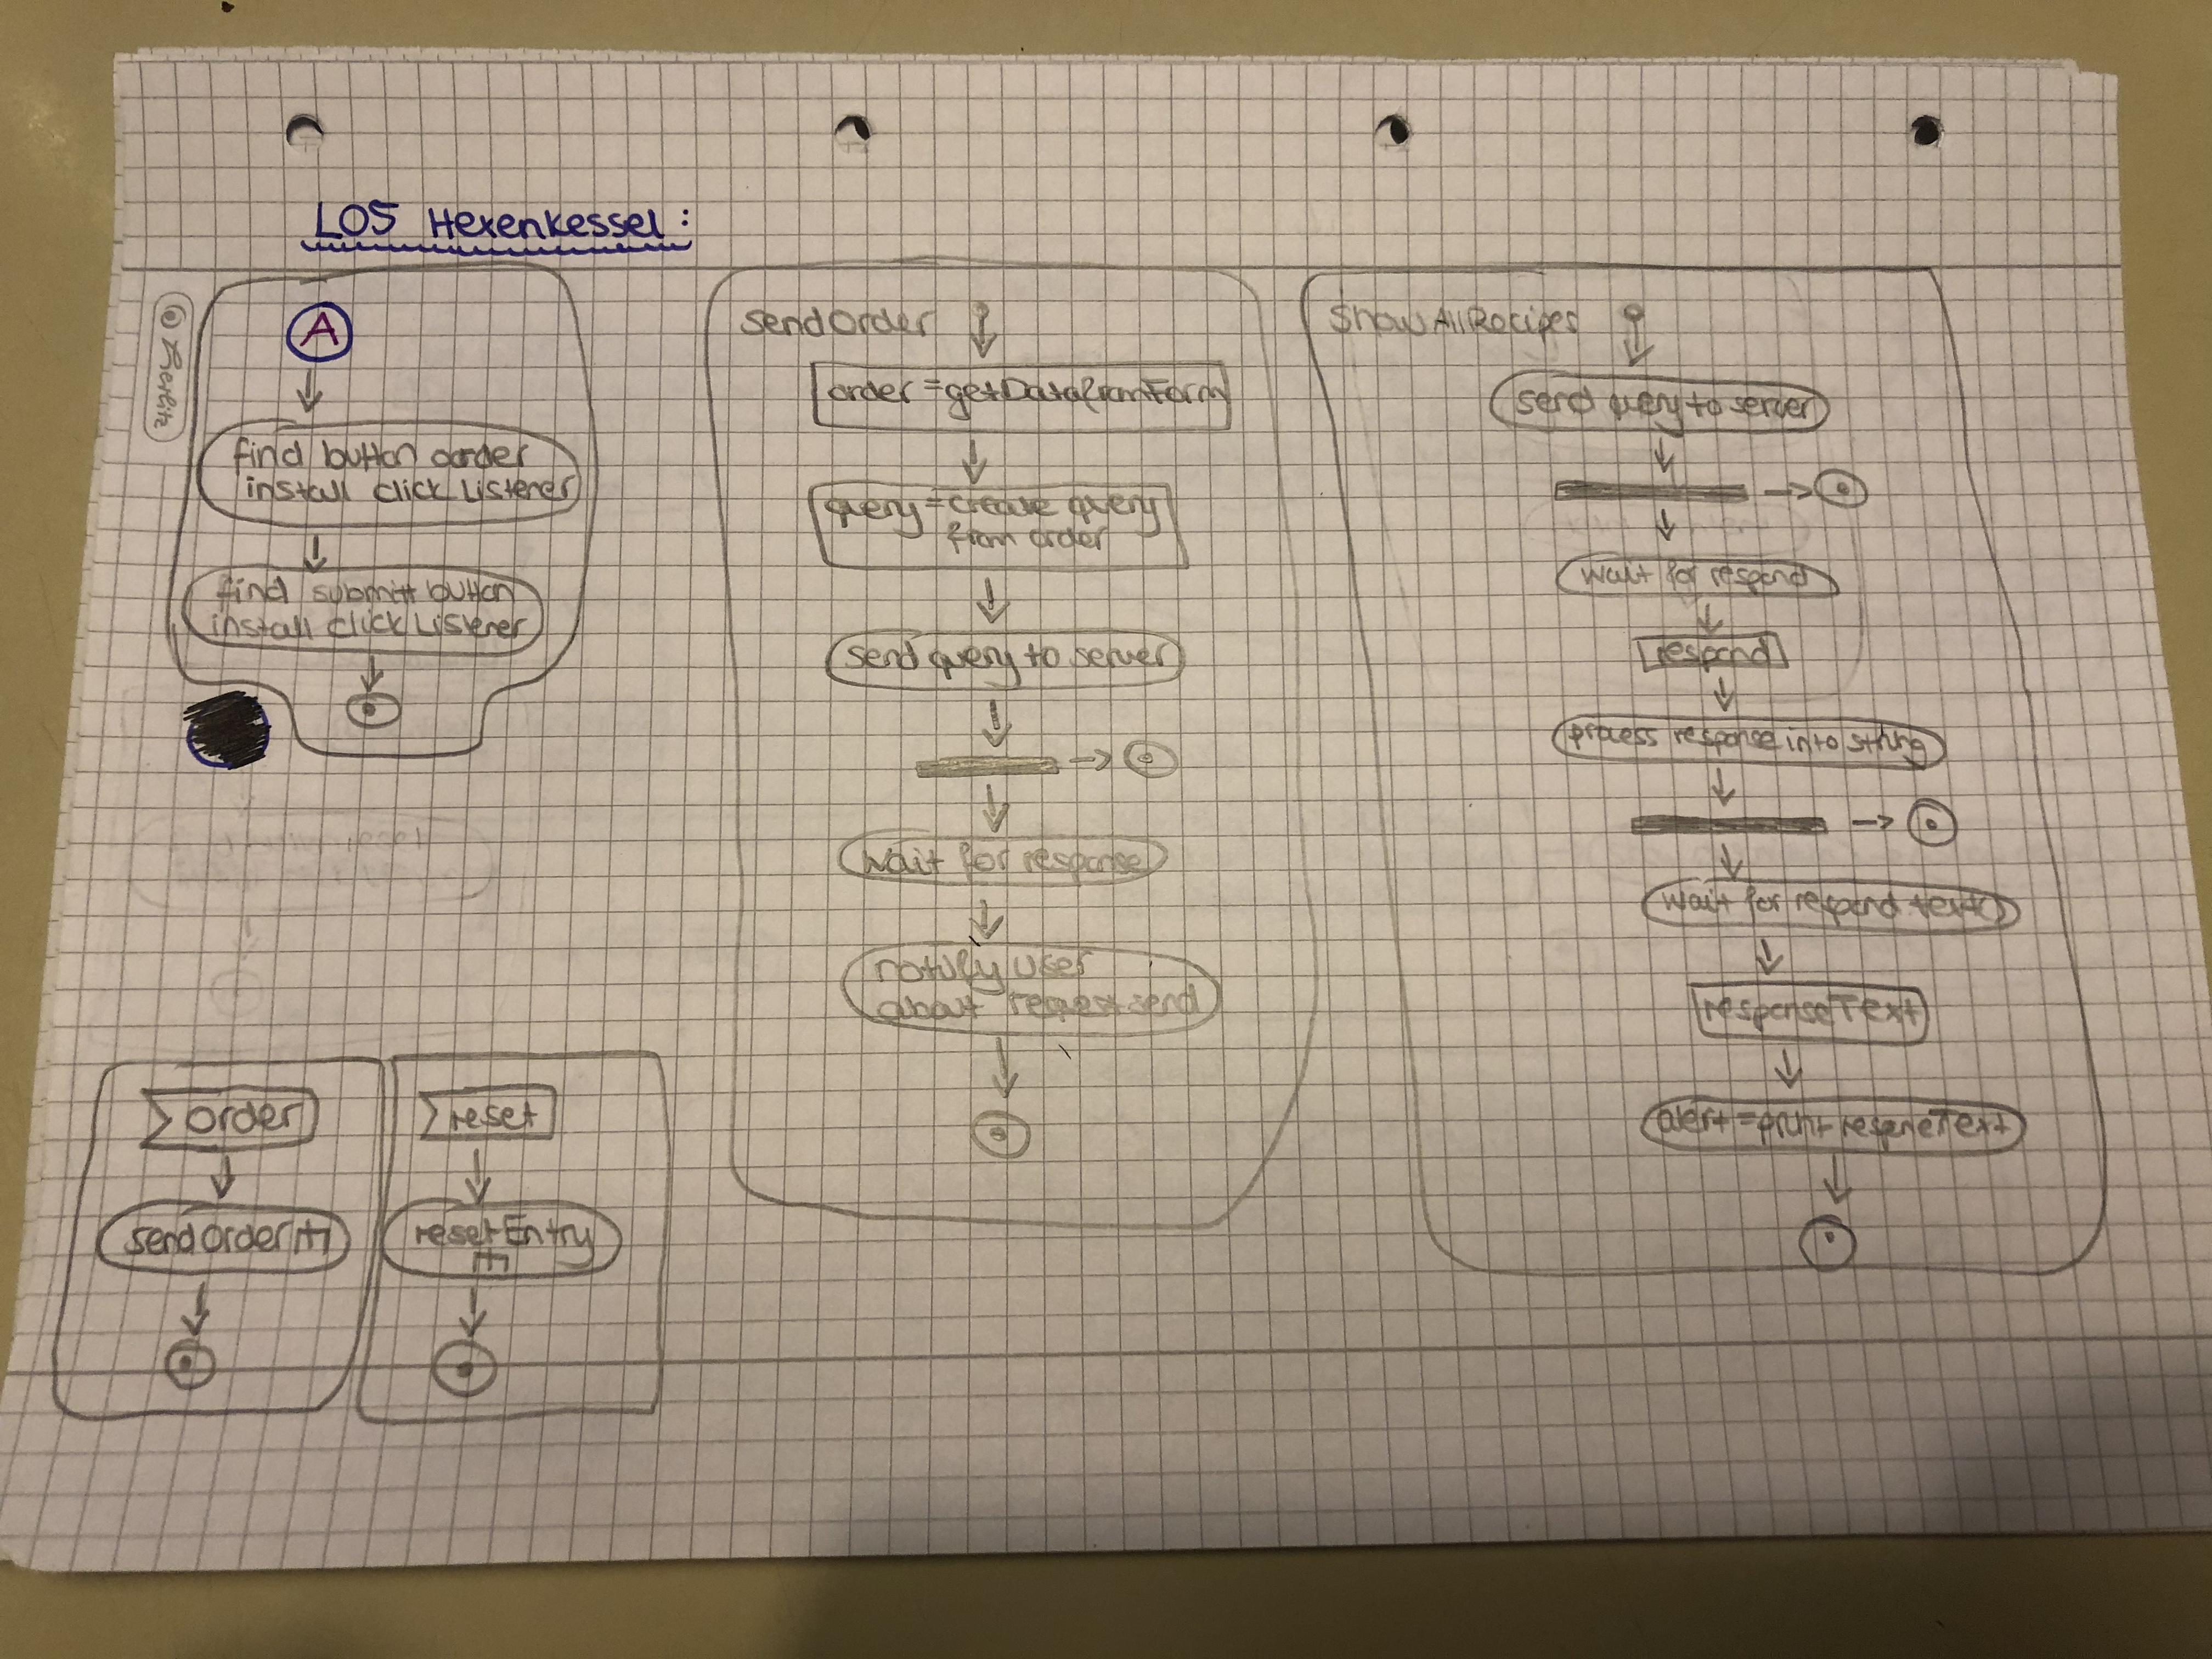 L05 Hexenkessel:
A
find button oarder
install click Listerer
find submitt button
install click Listener
order
sendOrder
reset
resetEntry
SendOrder
order = getDatafromForm
query = create query
from order
send query to server
wait for response
notify user
about
send
ShowAllRecipes
send query to server
wait for respond
respond
process response into string
wait for respond text()
responseText
alert =